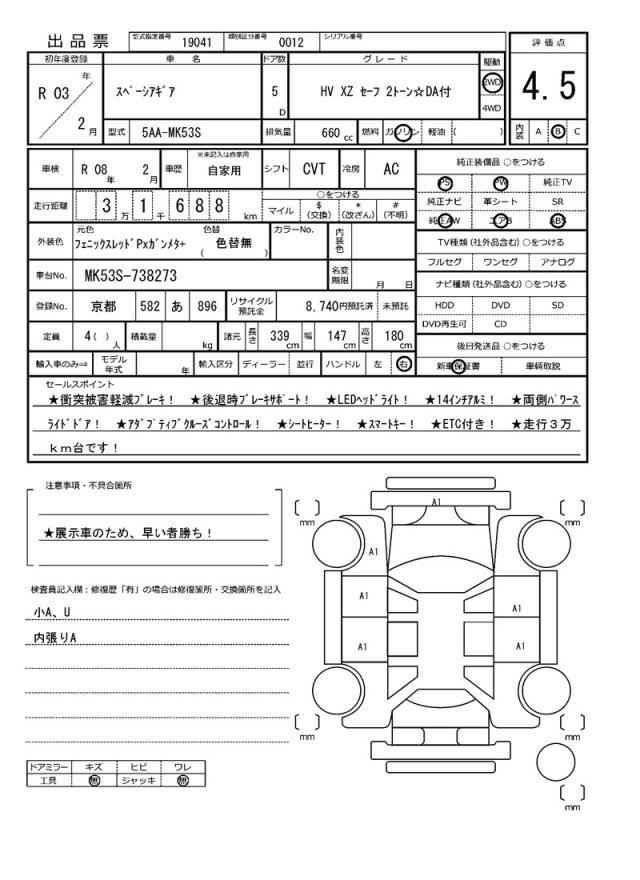 出品票 型式指定番号 19041 類別区分番号 0012 シリアル番号
初年度登録 車名 ドア数 グレード 駆動 評価点
R 03 年 2 月 スペーシアギア 5 D HV XZ セーフ 2トーン☆DA付 2WD 4WD 4.5
型式 5AA-MK53S 排気量 660 cc 燃料 ガソリン 軽油 ( ) 内装 A B C
車検 R 08 年 2 月 車歴 ※未記入は自家用 自家用 シフト CVT 冷房 AC
走行距離 3 万 1 千 6 8 8 km
○をつける
マイル $ (交換) * (改ざん) # (不明)
外装色 元色 フェニックスレッドPxガンメタ+ 色替 ( 色替無 ) カラーNo. 内装色
車台No. MK53S-738273 名変期限 月 日
登録No. 京都 582 あ 896 リサイクル預託金 8,740円預託済 未預託
定員 4( ) 人 積載量 kg 諸元 長さ 339 cm 幅 147 cm 高さ 180 cm
輸入車のみ⇒ モデル年式 年 輸入区分 ディーラー 並行 ハンドル 左 右
純正装備品 ○をつける
PS PW 純正TV
純正ナビ 革シート SR
純正AW エアB ABS
TV種類 (社外品含む) ○をつける
フルセグ ワンセグ アナログ
ナビ種類 (社外品含む) ○をつける
HDD DVD SD
DVD再生可 CD
後日発送品 ○をつける
新車保証書 車輌取説
セールスポイント
★衝突被害軽減ブレーキ! ★後退時ブレーキサポート! ★LEDヘッドライト! ★14インチアルミ! ★両側パワース
ライドドア! ★アダプティブクルーズコントロール! ★シートヒーター! ★スマートキー! ★ETC付き! ★走行3万
km台です!
注意事項・不具合箇所
★展示車のため、早い者勝ち!
検査員記入欄：修復歴「有」の場合は修復箇所・交換箇所を記入
小A、U
内張りA
ドアミラー キズ ヒビ ワレ
工具 無 ジャッキ 無
A1
A1
A1 A1
A1 A1
mm mm
mm mm
mm